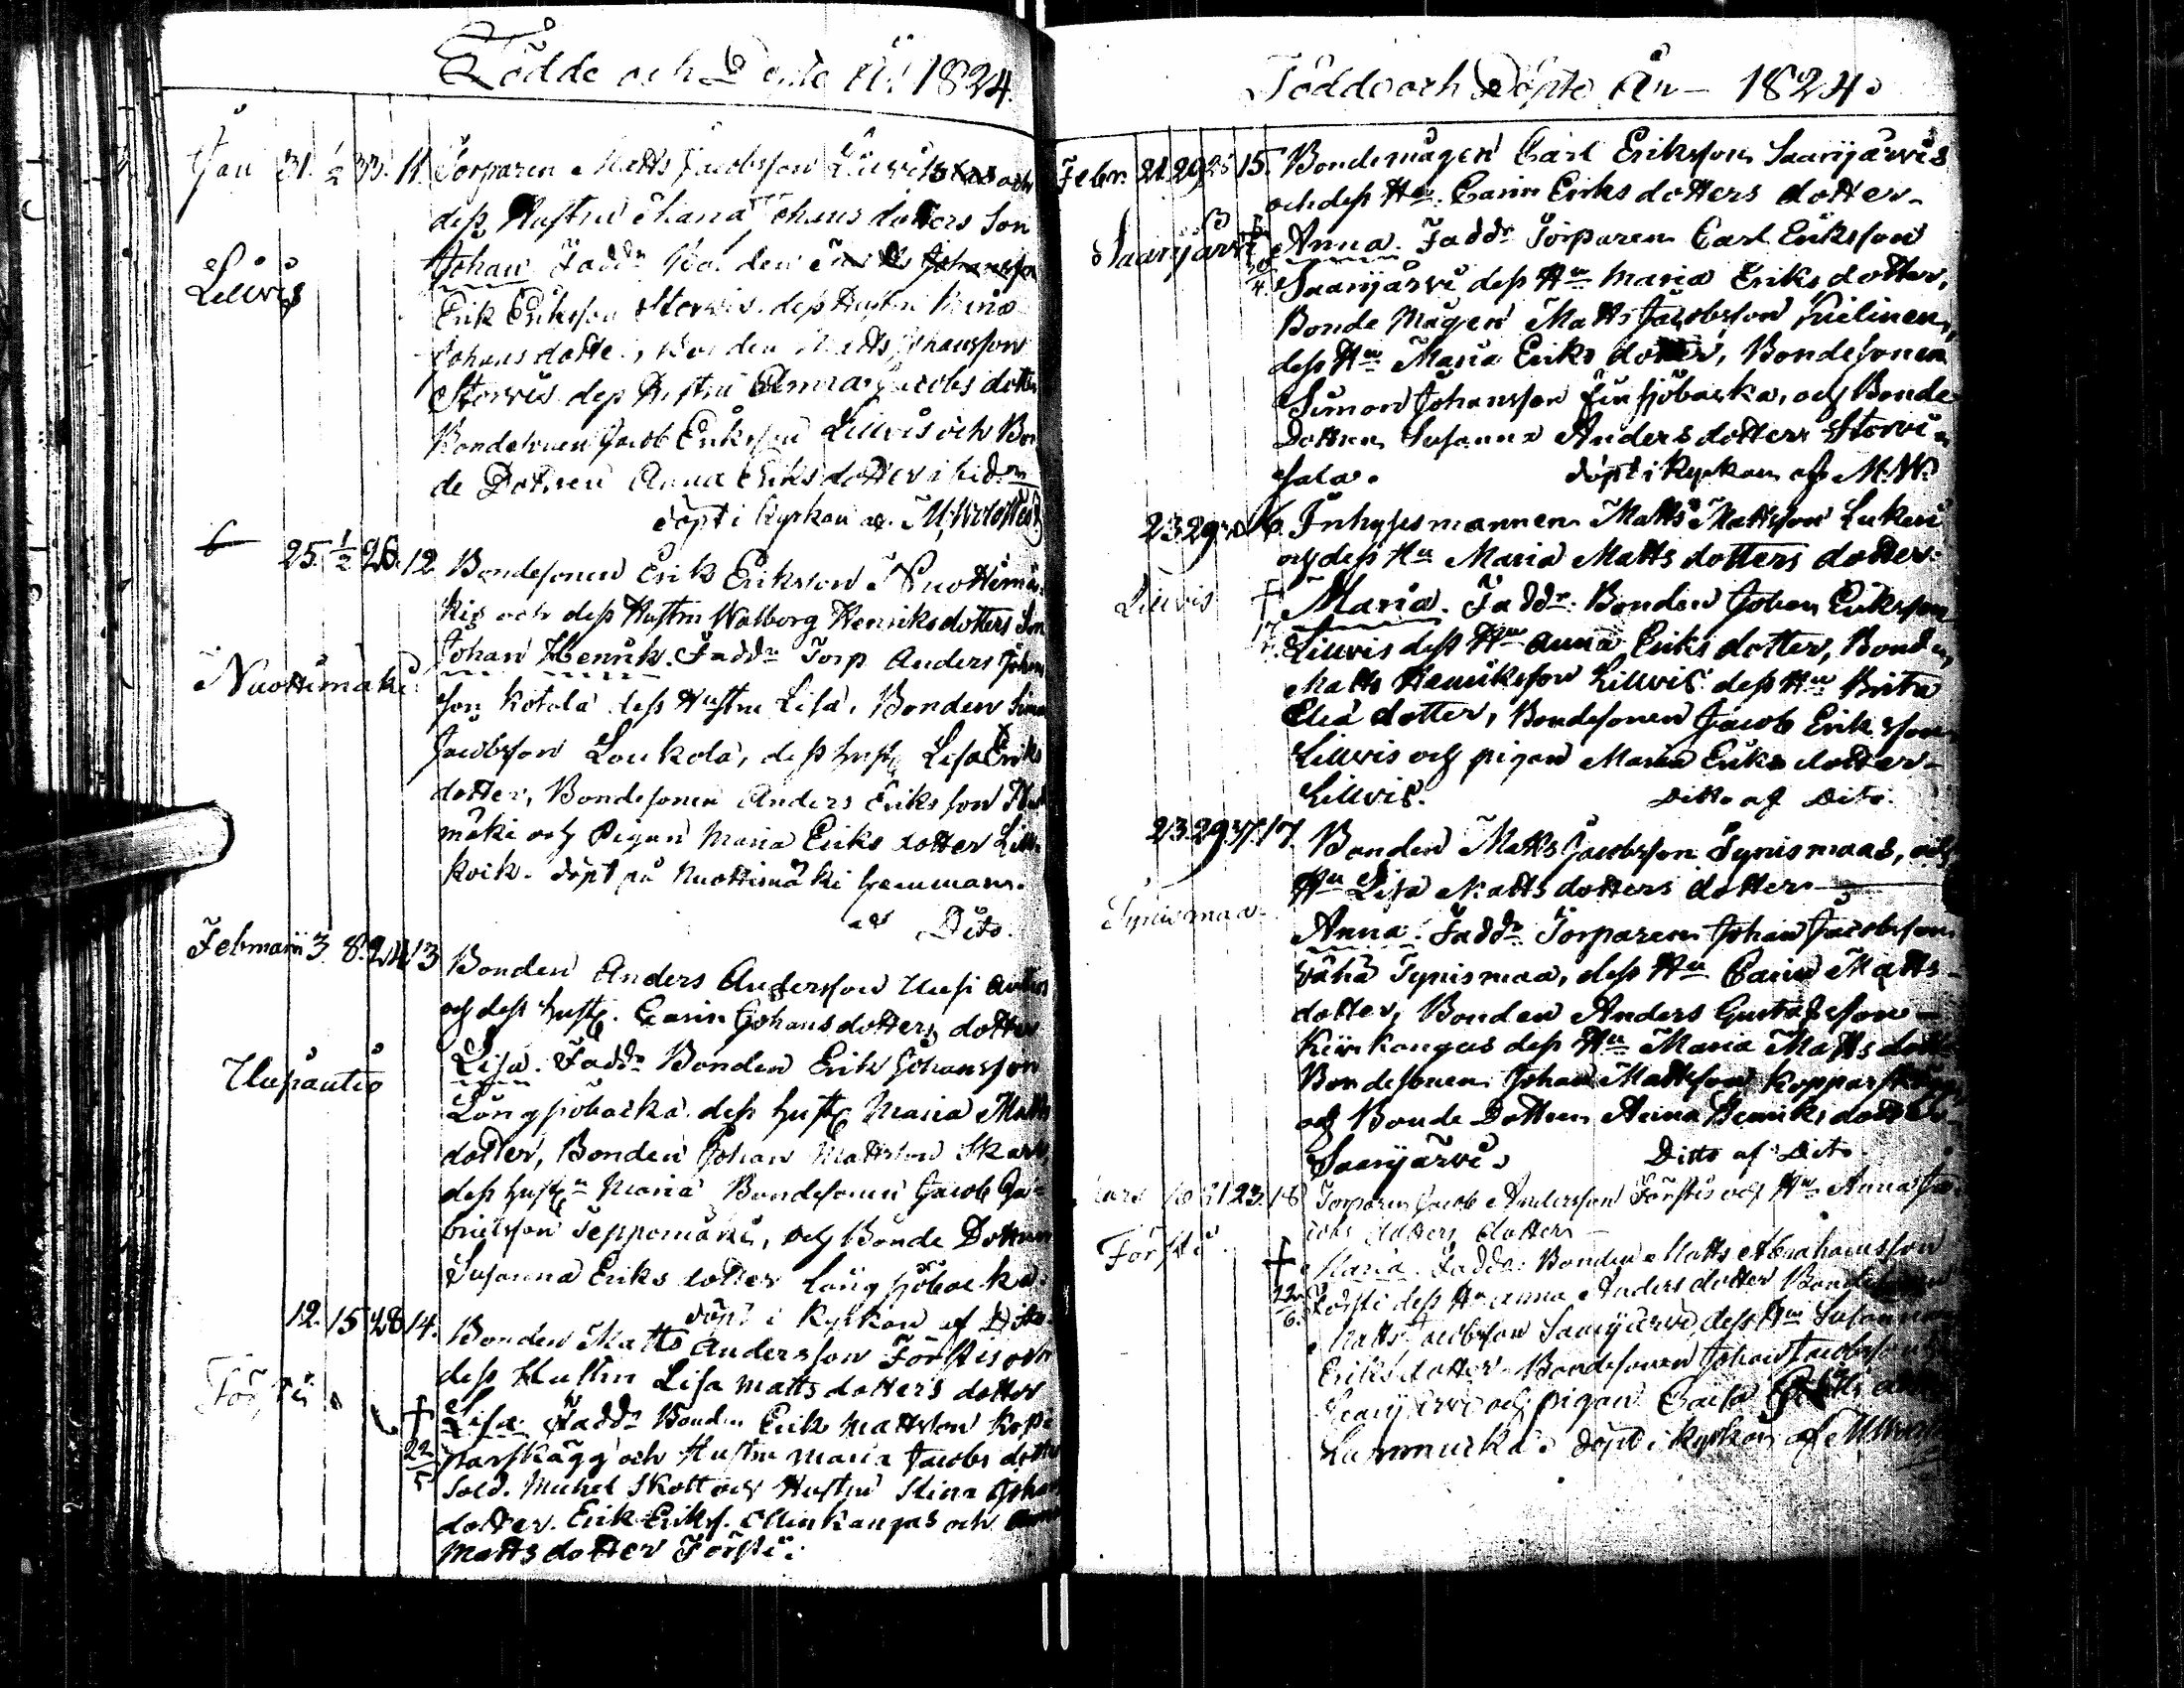 Födde och Döpte År 1824.
Jan 31. 1/2 33. 11. Torparen Matts Jacobsson Lillvis och
dess Hustru Maria Johans dotters Son
Johan Fadd:r Bonden
Lillvis
Erik Eriksson Storvis dess Hustru
Johans dotter, Bonden Matts Johansson
Storvis dess Hustru Jacobs dotter
Bondesonen Jacob Eriksson Lillvis och Bon
de Dottren Anna Eriks dotter
döpt i Kyrkan af M. 
25. 1/2 26. 12. Bondesonen Erik Eriksson Nuottimä
kis och dess Hustru Walborg Henriksdotters Son
Johan Henrik. Fadd:r Torp Anders Johans
Nuottimäki
son Kotola dess Hustru Lisa, Bonden Simon
Jacobsson Loukola, dess hust. Lisa Eriks
dotter, Bondesonen Anders Eriksson
mäki och Pigan Maria Eriks dotter Lill
kvik. döpt på Nuottimäki hemman.
af Dito.
Februarii 3. 8. 24. 13 Bonden Anders Andersson Uusi Autios
och dess hust. Carin Johansdotters dotter
Uusiautio
Lisa. Fadd:r Bonden Erik Johansson
Långsjöbacka dess hust Maria Matts
dotter, Bonden Johan Mattsson Skarp
dess hust:u Maria Bondesonen Jacob Ga-
brielsson Seppomäki, och Bonde Dottren
Susanna Eriks dotter Långsjöbacka.
döpt i Kyrkan af Dito.
12. 15 28 14. Bonden Matts Andersson Förstis och
dess Hustru Lisa Matts dotters dotter
Försti
† Lisa. Fadd:r Bonden Erik Mattsson Kop
22/5 parskägg och Hustru Maria Jacobs dotter
Sold. Michel Skott och Hustru Stina Johans
dotter. Erik Eriks. Ollinkangas och Anna
Matts dotter Försti.
Födde och Döpte År 1824.
Febr. 21. 29. 25 15. Bondemågen Carl Eriksson Saarijärvis
och dess H:u Carin Eriks dotters dotter
Saarijärvi
Anna. Fadd:r Torparen Carl Eriksson
Saarijärvi dess H:u Maria Eriks dotter,
Bonde Mågen Matts Jacobsson Kielinen,
dess H:u Maria Eriks dotter, Bondesonen
Simon Johansson Finsjöbacka, och Bonde
Dottren Susanna Anders dotter Storvi
sala. döpt i Kyrkan af M.W.
23 29 16. Inhysesmannen Matts Mattsson Lukkus
och dess H:u Maria Matts dotters dotter
Lillvis
† Maria. Fadd:r Bonden Johan Eriksson
17 Lillvis dess H:u Anna Eriks dotter, Bonden
Matts Henriksson Lillvis dess H:u Brita
Eliä dotter, Bondesonen Jacob Eriksson
Lillvis och pigan Maria Eriks dotter
Lillvis. Ditto af Dito.
23 29 37. 17. Bonden Matts Jacobsson Tynismaas, och
H:u Lisa Matts dotters dotter
Tynismaa
Anna. Fadd:r Torparen Johan Jacobsson
Vähä Tynismaa, dess H:u Carin Matts
dotter, Bonden Anders Gustafsson
Kivikangas dess H:u Maria Matts dotter
Bondesonen Johan Mattsson Kopparskägg
och Bonde Dottren Anna Henriks dotter
Saarijärvi. Ditto af Dito.
Mars 10 21 23. 18. Torparen Jacob Andersson Förstis och H:u Anna Ja-
cobs dotters dotter
Försti
† Maria. Fadd:r Bonden Matts Abrahamsson
22/6 Försti dess H:u Anna Anders dotter Bonden
Matts Jacobsson Saarijärvi, dess H:u Susanna
Eriks dotter Bondesonen Johan Jacobsson
Saarijärvi och pigan Caisa
Lammucka. döpt i kyrkan af